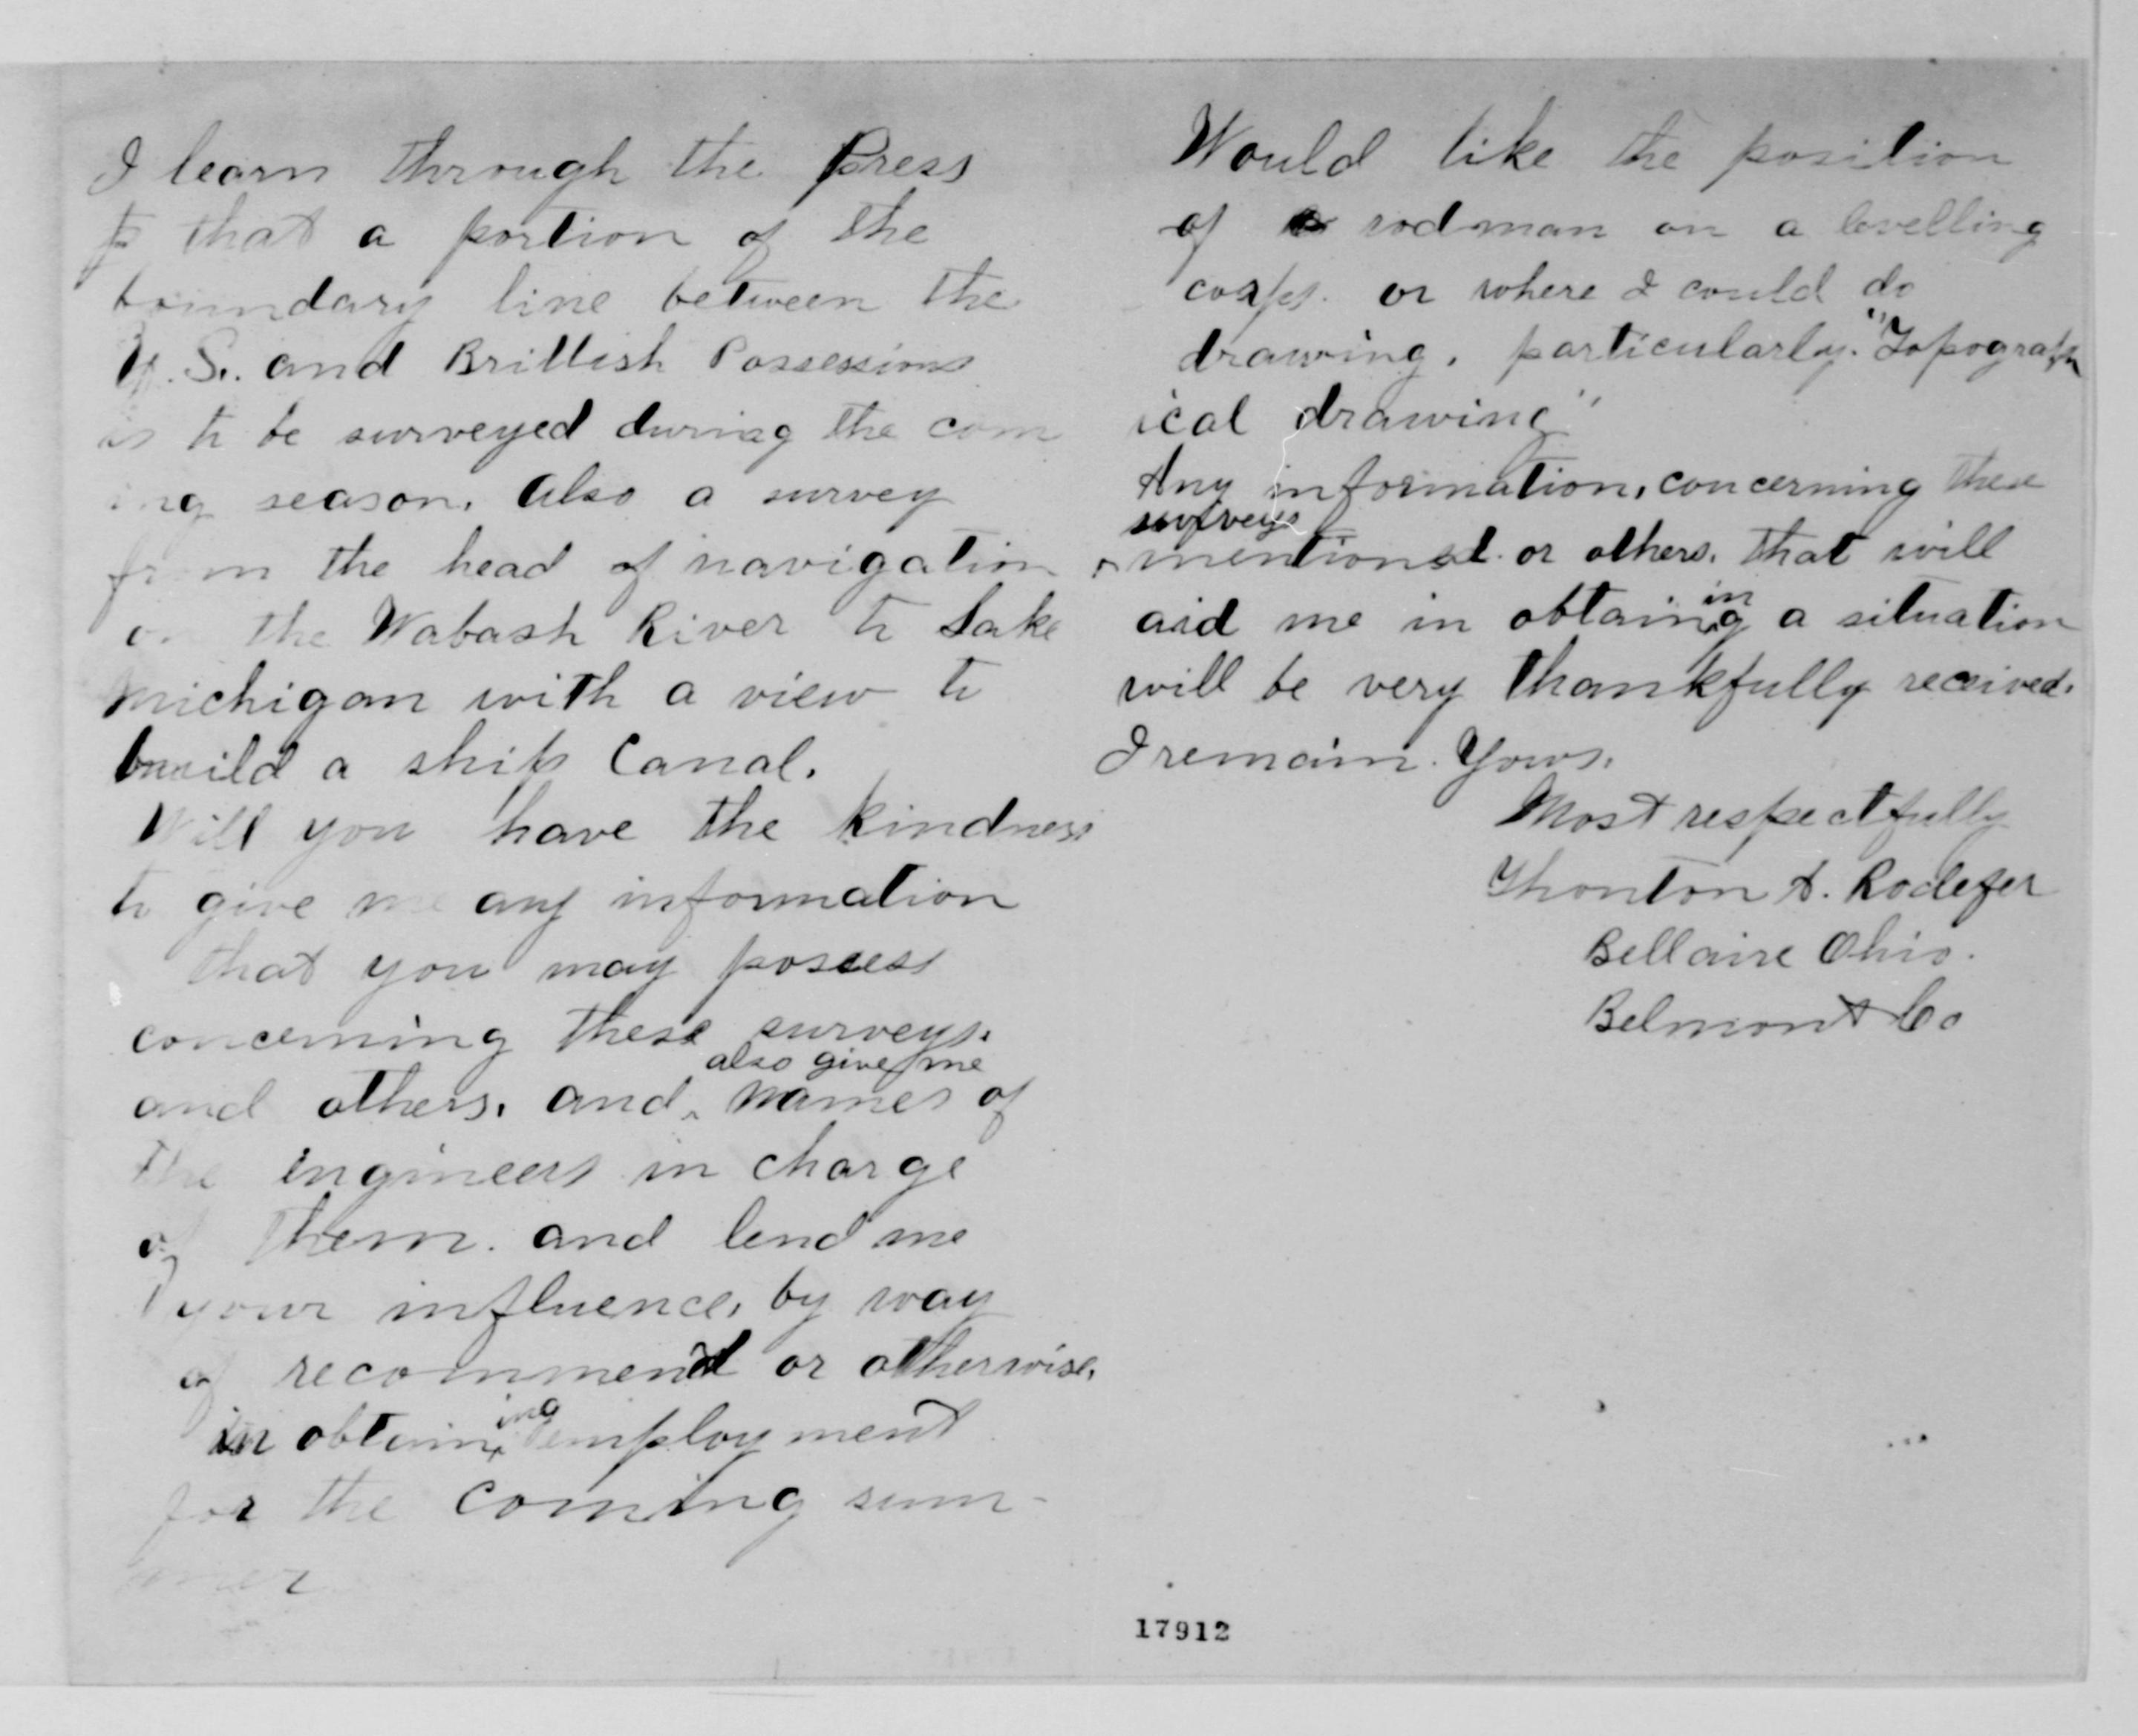 I learn through the Press
that a portion of the
boundary line between the
U. S. and Brittish Possessions
is to be surveyed during the com
ing season. Also a survey
from the head of navigation
on the Wabash River to Lake
Michigan with a view to
build a ship Canal.
Will you have the kindness
to give me any information
that you may possess
concerning these surveys.
also give me
and others. and names of
the Engineers in charge
of them. and lend me
your influence, by way
of recommend or otherwise,
ing
in obtain employment
for the coming sum-
mer
Would like the position
of rodman on a levelling
corps. or where I could do
drawing, particularly. "Topograph
ical drawing"
Any information, concerning these
surveys
mentioned or others. that will
in
aid me in obtaing a situation
will be very thankfully received.
I remain. Yours.
Most respectfully
Thonton A. Rodefer
Bellaire Ohio.
Belmont Co
17912